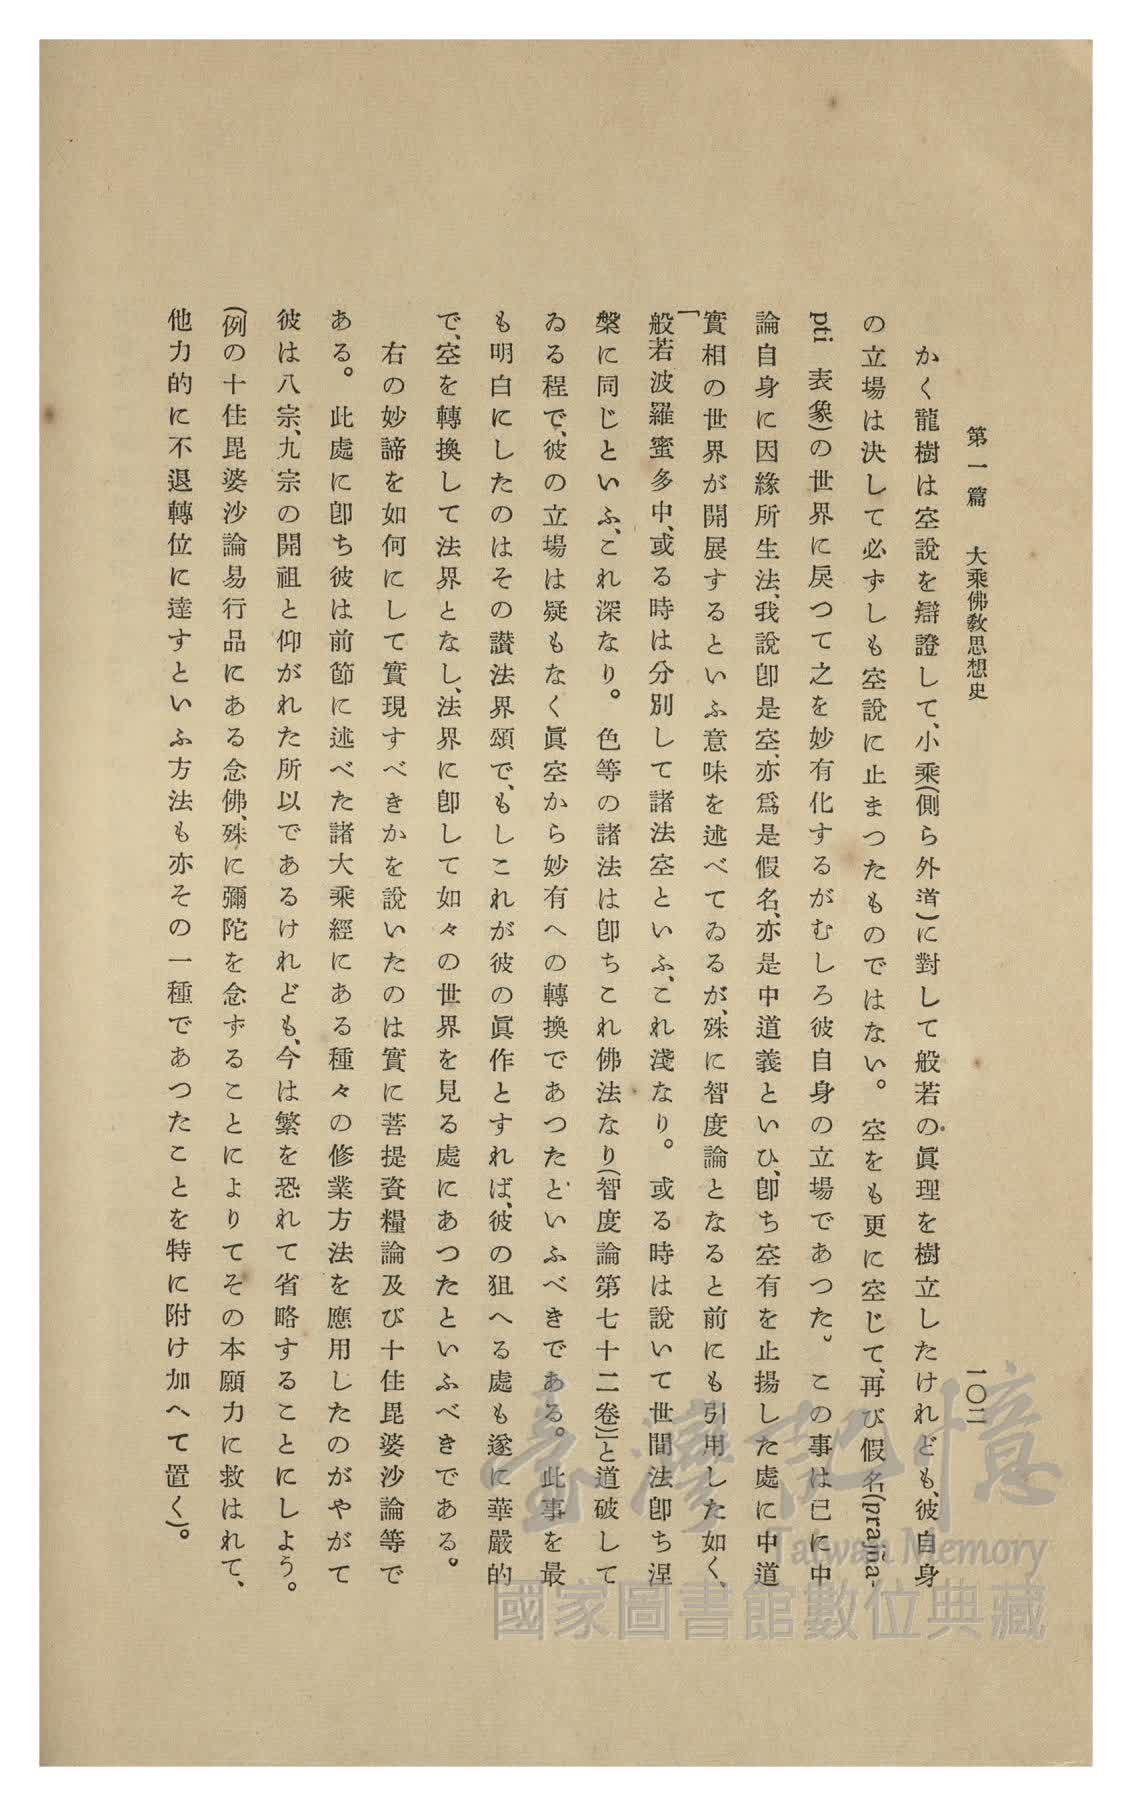 第一篇　大乘佛敎思想史
一〇二
かく龍樹は空說を辯證して、小乘(側ら外道)に對して般若の眞理を樹立したけれども、彼自身
の立場は決して必ずしも空說に止まつたものではない。空をも更に空じて、再び假名(prajña-
pti 表象)の世界に戾つて之を妙有化するがむしろ彼自身の立場であつた。この事は已に中
論自身に因緣所生法、我說卽是空、亦爲是假名、亦是中道義といひ、卽ち空有を止揚した處に中道
實相の世界が開展するといふ意味を述べてゐるが、殊に智度論となると前にも引用した如く、
「般若波羅蜜多中、或る時は分別して諸法空といふ、これ淺なり。或る時は說いて世間法卽ち涅
槃に同じといふ、これ深なり。色等の諸法は卽ちこれ佛法なり(智度論第七十二卷)」と道破して
ゐる程で、彼の立場は疑もなく眞空から妙有への轉換であつたといふべきである。此事を最
も明白にしたのはその讃法界頌で、もしこれが彼の眞作とすれば、彼の狙へる處も遂に華嚴的
で、空を轉換して法界となし、法界に卽して如々の世界を見る處にあつたといふべきである。
右の妙諦を如何にして實現すべきかを說いたのは實に菩提資糧論及び十住毘婆沙論等で
ある。此處に卽ち彼は前節に述べた諸大乘經にある種々の修業方法を應用したのがやがて
彼は八宗、九宗の開祖と仰がれた所以であるけれども、今は繁を恐れて省略することにしよう。
(例の十住毘婆沙論易行品にある念佛、殊に彌陀を念ずることによりてその本願力に救はれて、
他力的に不退轉位に達すといふ方法も亦その一種であつたことを特に附け加へて置く)。
臺灣記憶
Taiwan Memory
國家圖書館數位典藏